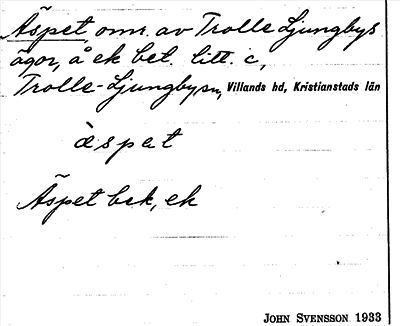 Äspet, omr. av Trolle Ljungbys
ägor, å ek bet. litt. c,
Trolle-Ljungby sn, Villands hd, Kristianstads län
ä̀spet
Äspet bsk, ek
JOHN SVENSSON 1933